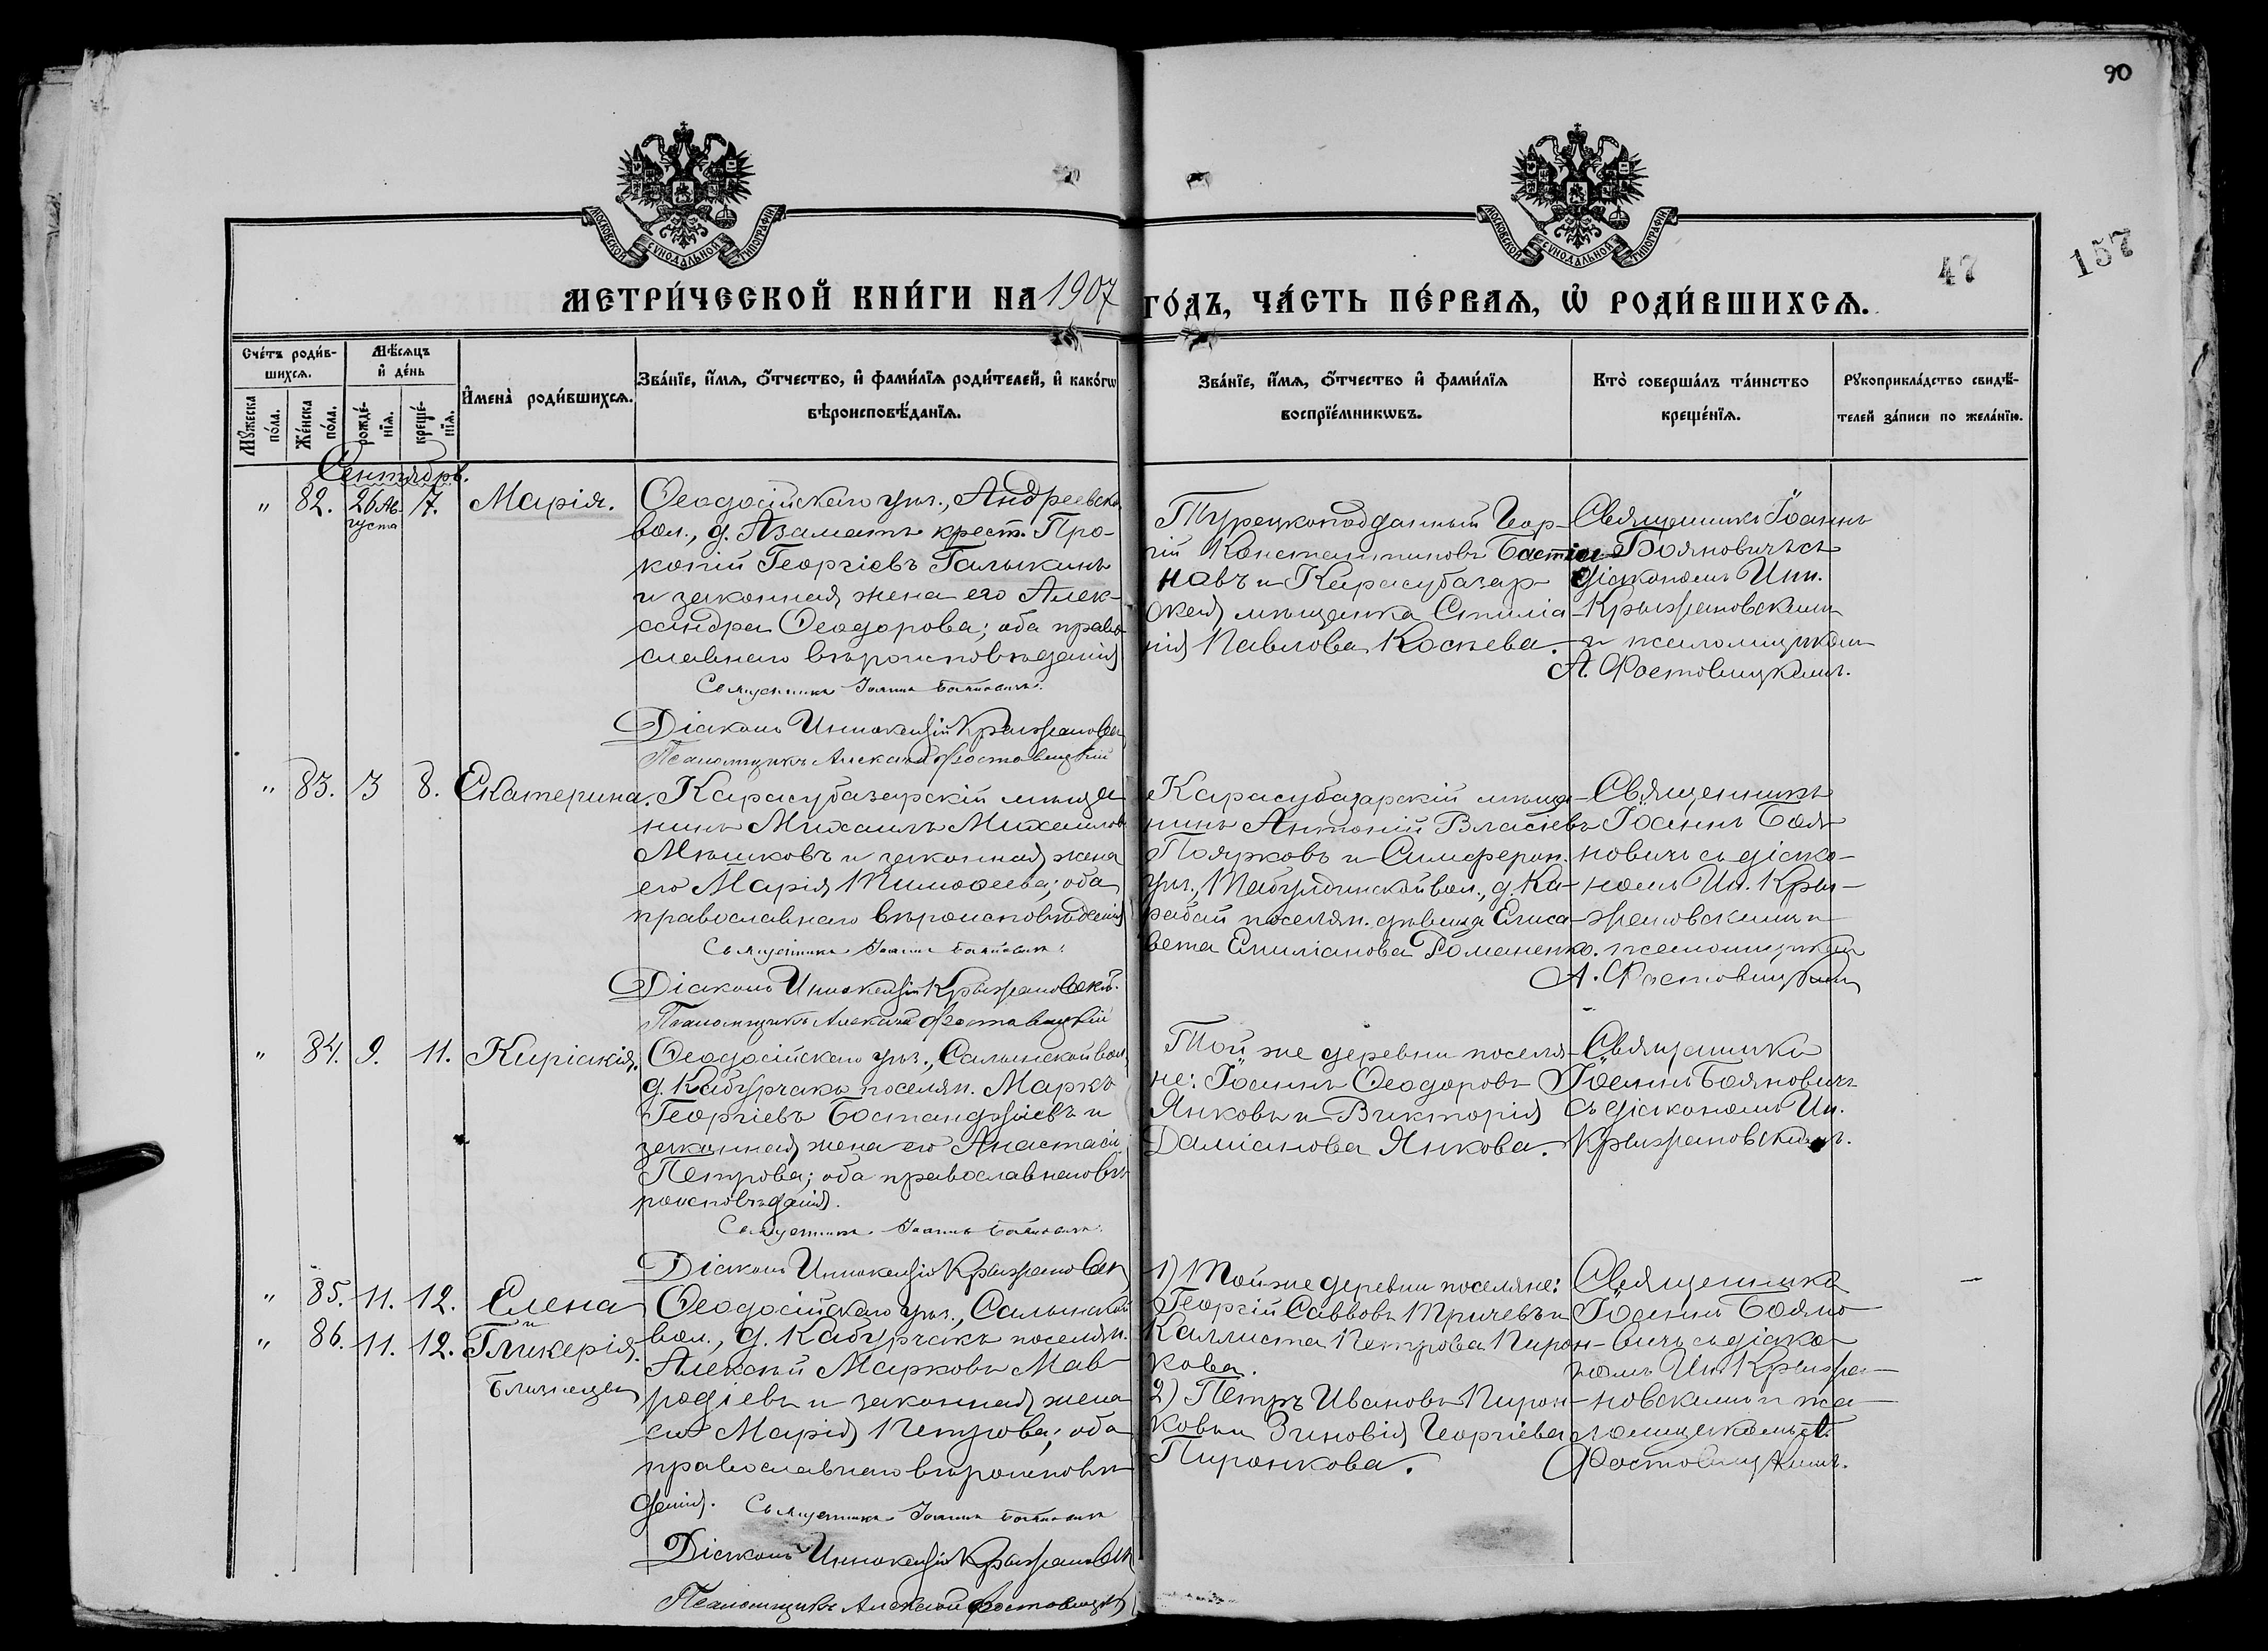 90
157
47
МОСКОВСКОЙ СѴНОДАЛЬНОЙ ТИПОГРАФІИ
МОСКОВСКОЙ СѴНОДАЛЬНОЙ ТИПОГРАФІИ
МЕТРИ́ЧЕСКОЙ КНИ́ГИ НА 1907 ГО́ДЪ, ЧА́СТЬ ПЕ́РВАѦ, Ѡ҆ РОДИ́ВШИХСѦ.
Сче́тъ роди́в-
шихсѧ.
Мꙋ́жеска по́ла.
Же́нска по́ла.
Мѣ́сѧцъ
и҆ де́нь
рожде́-
нїѧ.
креще́-
нїѧ.
И҆мена̀ роди́вшихсѧ.
Зва́нїе, и҆́мѧ, ѻ҆́тчество, и҆ фами́лїѧ роди́телей, и҆ како́гѡ
вѣроисповѣ́данїѧ.
Зва́нїе, и҆́мѧ, ѻ҆́тчество и҆ фами́лїѧ
воспрїе́мникѡвъ.
Кто̀ соверша́лъ та́инство
креще́нїѧ.
Рꙋкоприкла́дство свидѣ́-
телей за́писи по жела́нїю.
Сентябрь.
" 82. 26 Ав-
густа 7. Марія.
Ѳеодосійскаго уѣз., Андреевск.
вол., д. Азаматъ крест. Про-
копій Георгіевъ Галыкинъ
и законная жена его Алек-
сандра Ѳеодорова; оба право-
славнаго вѣроисповѣданія
Священникъ Іоаннъ Бояновичъ.
Діаконъ Иннокентій Крыжановскій
Псаломщикъ Алексѣй Фостовицкій
Турецкоподданный Геор-
гій Константиновъ Бастіа-
новъ и Карасубазар-
ская мѣщанка Стиліа-
нія Павлова Косьева.
Священникъ Іоаннъ
Бояновичъ съ
діакономъ Инн.
Крыжановскимъ
и псаломщикомъ
А. Фостовицкимъ.
" 83. 3 8. Екатерина.
Карасубазарскій мѣща
нинъ Михаилъ Михаиловъ
Мѣшковъ и законная жена
его Марія Тимоѳеева; оба
православнаго вѣроисповѣданія
Священникъ Іоаннъ Бояновичъ.
Діаконъ Иннокентій Крыжановскій.
Псаломщикъ Алексѣй Фостовицкій
Карасубазарскій мѣща-
нинъ Антоній Власіевъ
Поярковъ и Симфероп.
уѣз., Табулдинской вол., д. Ка-
рабай поселян. дѣвица Елиса-
вета Емиліанова Романенко.
Священникъ
Іоаннъ Боя-
новичъ съ діако-
номъ Ин. Кры-
жановскимъ и
псаломщикомъ
А. Фостовицкимъ
" 84. 9. 11. Киріакія.
Ѳеодосійскаго уѣз., Салынской вол.,
д. Кабурчакъ поселян. Маркъ
Георгіевъ Бостанджіевъ и
законная жена его Анастасія
Петрова; оба православнаго вѣ-
роисповѣданія.
Священникъ Іоаннъ Бояновичъ.
Діаконъ Иннокентій Крыжановск
Той же деревни поселя-
не: Іоаннъ Ѳеодоровъ
Янковъ и Викторія
Даміанова Янкова.
Священникъ
Іоаннъ Бояновичъ
съ діакономъ Ин.
Крыжановскимъ.
" 85. 11. 12. Елена
и
" 86. 11. 12. Гликерія.
близнецы
Ѳеодосійскаго уѣз., Салынской
вол., д. Кабурчакъ поселян.
Алексѣй Марковъ Мав-
родіевъ и законная жена
его Марія Петрова; оба
православнаго вѣроисповѣ-
данія. Священникъ Іоаннъ Бояновичъ
Діаконъ Иннокентій Крыжановск
Псаломщикъ Алексѣй Фостовицкій
1) Той же деревни поселяне:
Георгій Саввовъ Тричевъ и
Каллиста Петрова Пирон-
кова.
2) Петръ Ивановъ Пирон-
ковъ и Зиновія Георгіева
Пиронкова.
Священникъ
Іоаннъ Бояно-
вичъ съ діако-
номъ Ин. Крыжа-
новскимъ и пса-
ломщикомъ А.
Фостовицкимъ.